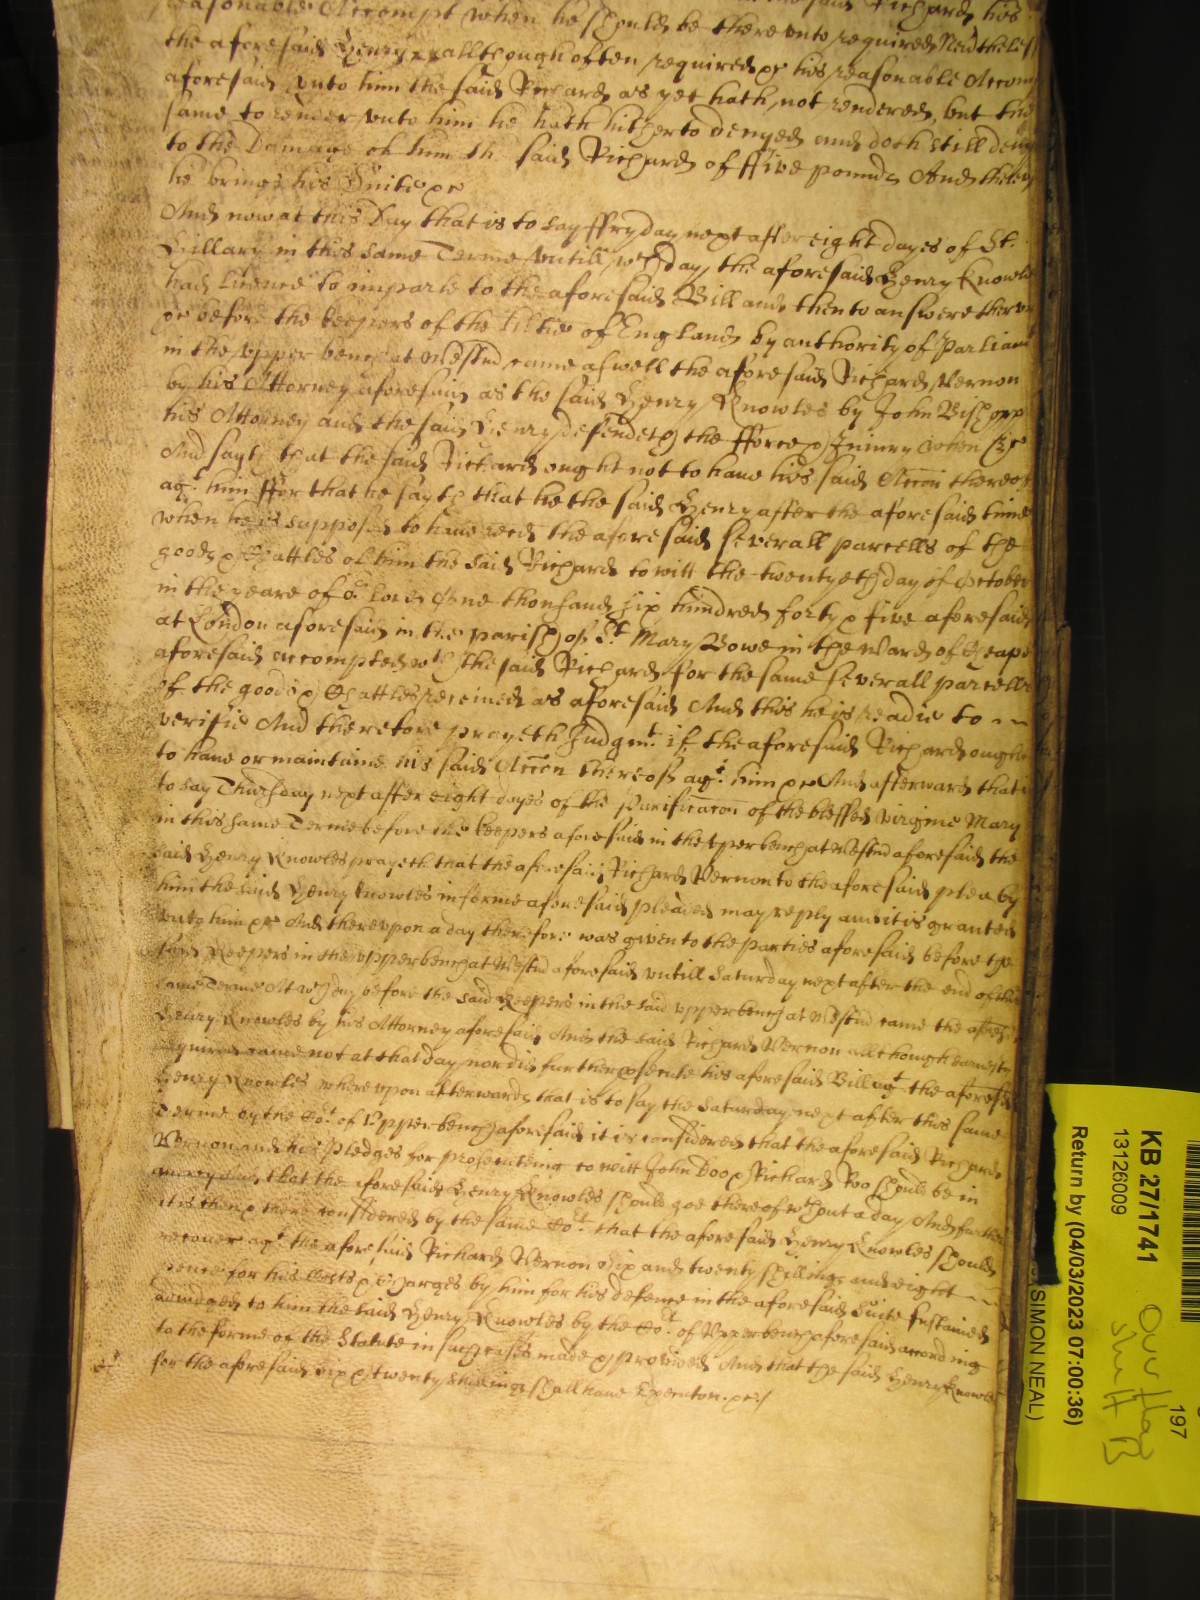 reasonable Accompt when he should be there vnto required Neu'theless
the aforesaid Henry although often required &c his reasonable Accom
aforesaid vnto him the said Richard as yet hath not rendered, but the
same to render vnto him he hath hitherto denyed and doth still deny
to the Damage of him the said Richard of ffive pounds And thereu
he brings his Suite &c
And now at this Day that is to say ffryday next after eight dayes of St.
Hillary in this same Terme vntill wch day the aforesaid Henry Knowles
had licence to imparle to the aforesaid Bill and then to answere therevn
&c before the keepers of the lib'ties of England by authority of Parliamt
in the vpper bench at Westmr came aswell the aforesaid Richard Vernon
by his Attorney aforesaid as the said Henry Knowles by John Bishopp
his Attorney and the said Henry defendeth the fforce & Iniury when &c
And sayth that the said Richard ought not to haue his said Accon thereof
agt. him ffor that he sayth that he the said Henry after the aforesaid time
when he is supposed to haue recd the aforesaid severall parcells of the
goods & Chattles of him the said Richard to witt the twentyeth day of October
in the yeare of or Lord One thousand six hundred forty & five aforesaid
at London aforesaid in the parish of St Mary Bowe in the Ward of Cheape
aforesaid accompted wth the said Richard for the same severall parcells
of the goods & Chattles receiued as aforesaid And this he is readie to
verifie And therefore prayeth Judgmt. if the aforesaid Richard ought
to haue or maintaine his said Accon thereof agt. him &c And afterwards that i
to say Thursday next after eight dayes of the Purificacon of the blessed virgine Mary
in this same Terme before the keepers aforesaid in the vpper bench at Westmr aforesaid the
said Henry Knowles prayeth that the aforesaid Richard Vernon to the aforesaid plea by
him the said Henry Knowles in forme aforesaid pleaded may reply and it is granted
vnto him &c And therevpon a day therefore was given to the parties aforesaid before the
said Keepers in the vpper bench at Westmr aforesaid vntill Saturday next after the end of this
same Terme At wch day before the said Keepers in the said vpper bench at Westmr came the aforesd
Henry Knowles by his Attorney aforesaid And the said Richard Vernon allthough earnestly
required came not at that day nor did further psecute his aforesaid Bill agt the aforesd
Henry Knowles wherevpon afterwards that is to say the Saturday next after this same
Terme by the Cot. of Vpper bench aforesaid it is considered that the aforesaid Richard
Vernon and his Pledges for prosecuteing to witt John Doo & Richard Roo should be in
mercy And that the aforesaid Henry Knowles should goe thereof wthout a day And further
it is then & there considered by the same Cot. that the aforesaid Henry Knowles should
recouer agt. the aforesaid Richard Vernon six and twenty shillings and eight
pence for his Costs & Charges by him for his defence in the aforesaid Suite sustained
adiudged to him the said Henry Knowles by the Cot. of Vpper bench aforesaid according
to the forme of the Statute in such case made & provided And that the said Henry Knowles
for the aforesaid six & twenty shillings shall haue Execution &c/
KB 27/1741
13126009
Return by (04/03/2023 07:00:36)
(SIMON NEAL)
197